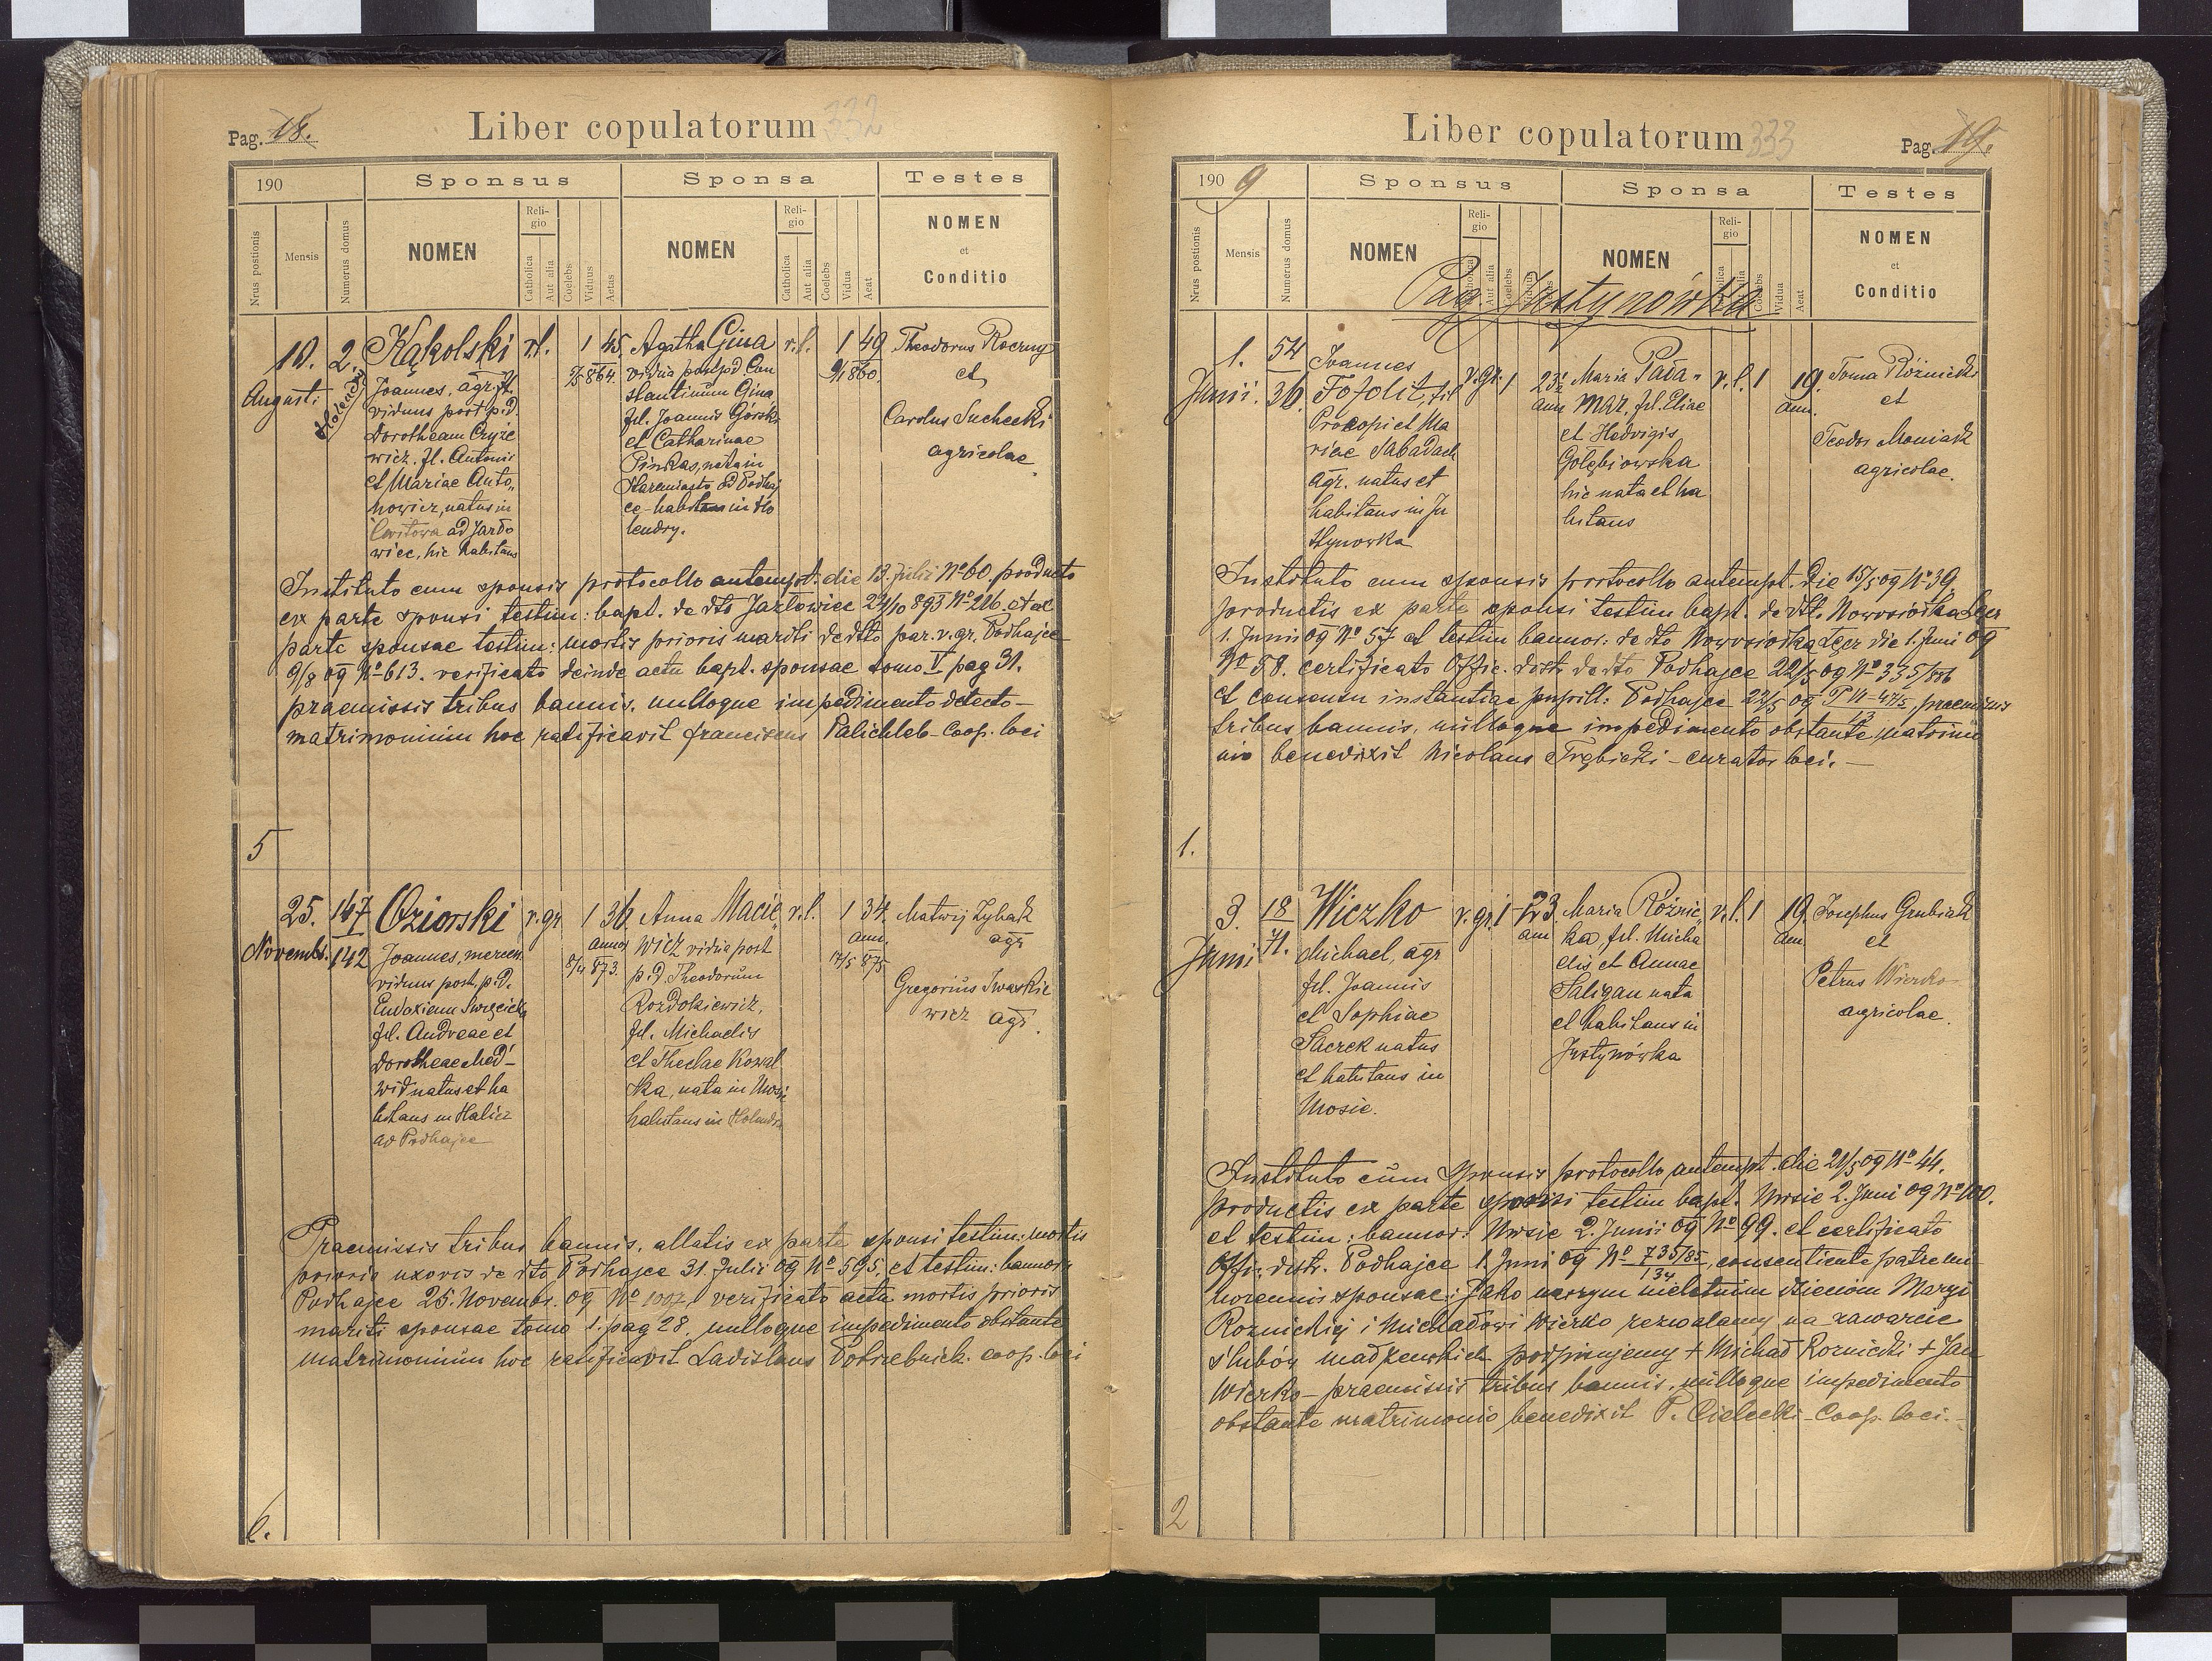 Pag. 18.
Liber copulatorum 332
190
Sponsus
Sponsa
Testes
Nrus postionis
Mensis
Numerus domus
NOMEN
Religio
Catholica
Aut alia
Coelebs
Viduus
Aetas
NOMEN
Religio
Catholica
Aut alia
Coelebs
Vidua
Aeat
NOMEN
et
Conditio
10.
Augusti
2.
Holendry
Kąkolski
Joannes, agr. fil.
viduus post p. d.
Dorotheam Cryże
wicz. fl. Antonii
et Mariae Anto„
nowicz, natus in
ad Jazło
wiec, hic habitans
r.l.
1
45.
864.
Agatha Gina
vidua post p. d. Con
stantinum Gina,
fil. Joannis Górski
et Catharinae
Pinkas, nata in
Staremiasto ad Podhaj
ce habitans in Ho
lendry.
r.l.
1
49
860.
Theodorus Roczny
et
Carolus Suchecki
agricolae.
Instituto cum sponsis protocollo antempt: die 13. Julii No 60. producto
ex parte sponsi testim: bapt. de dto Jazłowiec 24/10 893 No 216. et ex
parte sponsae testim: mortis prioris mariti de dto par. r. gr. Podhajce
9/8 09 No 613. verificato deinde actu bapt. sponsae tomo V pag 31.
praemissis tribus bannis, nulloque impedimento detecto –
matrimonium hoc ratificavit Franciscus Palichleb – Coop. loci
5
25.
Novembr.
147
1
142
Oziorski
Joannes, mercen.
viduus post p. d.
Eudoxiam Swięcicka
fil. Andreae et
Dorotheae Med–
wid natus et ha
bitans in Halicz
ad Podhajce
r. gr
1
36
annor
8/4 873.
Anna Macie„
wicz vidua post
p. d. Theodorum
Rozdolkiewicz,
fil. Michaelis
et Theclae Kowal
ska, nata in Mosie
habitans in Holendry
r. l.
1
34.
ann.
17/5 875
Matwij Zybak
agr
Gregorius Iwaskie
wicz agr.
Praemissis tribus bannis, allatis ex parte sponsi testim: mortis
prioris uxoris de dto Podhajce 31. Julii 09 No 595. et testim: bannor.
Podhajce 25. Novembr. 09 No 1007, verificato actu mortis prioris
mariti sponsae tomo 1. pag 28. nulloque impedimento obstante
matrimonium hoc ratificavit Ladislaus Potrzebnick. coop. loci
6.
Liber copulatorum 333
Pag. 19.
190 9
Sponsus
Sponsa
Testes
Nrus postionis
Mensis
Numerus domus
NOMEN
Religio
Catholica
Aut alia
Coelebs
NOMEN
Religio
Coelebs
Vidua
Aeat
NOMEN
et
Conditio
Pag. Justynówka
1.
Junii.
54
36.
Joannes
Fofolit, fil
Procopi et Ma
riae Sabadach
agr. natus et
habitans in Ju
stynowka
r. gr.
1
23½
ann
Maria Pada„
maz, fil. Eliae
et Hedvigis
Gołębiowska
hic nata et ha
bitans
r. l.
1
19.
ann.
Toma Różnicki
et
Teodor Moniak
agricolae.
Instituto cum sponsis protocollo antempt. die 15/5 09 No 39
productis ex parte sponsi testim bapt. de dto. Nowosiołka
1. Junii 09 No 57 et testim bannor: de dto Nowosiołka die 1. Juni 09
No 58. certificato Offic. distr de dto Podhajce 22/5 09 No 335/886
et consensu instantiae pupill: Podhajce 22/5 09 praemissis
tribus bannis, nulloque impedimento obstante matrimo
nio benedixit Nicolaus Trębicki – curator loci. –
1.
3.
Junii
18
71.
Wiczko
Michael, agr
fil. Joannis
et Sophiae
Saczek natus
et habitans in
Mosie.
r. gr.
1
23.
ann
Maria Różnic„
ka fil. Micha
elis et Annae
Saligan nata
et habitans in
Justynówka
r. l.
1
19.
ann.
Josephus Grubiak
et
Petrus Wiczko
agricolae.
Instituto cum Sponsis protocollo antempt. die 21/5 09 No 44.
productis ex parte sponsi testim bapt. Mosie 2. Juni 09 No 100.
et testim: bannor: Mosie 2. Junii 09 No 99. et certificato
Offic. distr. Podhajce 1. Juni 09 No 735/85/134, consentiente patre mi
norennis sponsae: Jako naszym nieletnim dzieciom Maryi
Roznickiej i Michałowi Wiczko zezwalamy na zawarcie
ślubów małżenskich podpisujemy + Michał Roznicki + Jan
Wiczko – praemissis tribus bannis, nulloque impedimento
obstante matrimonio benedixit P. Cielecki – Coop. loci. –
2